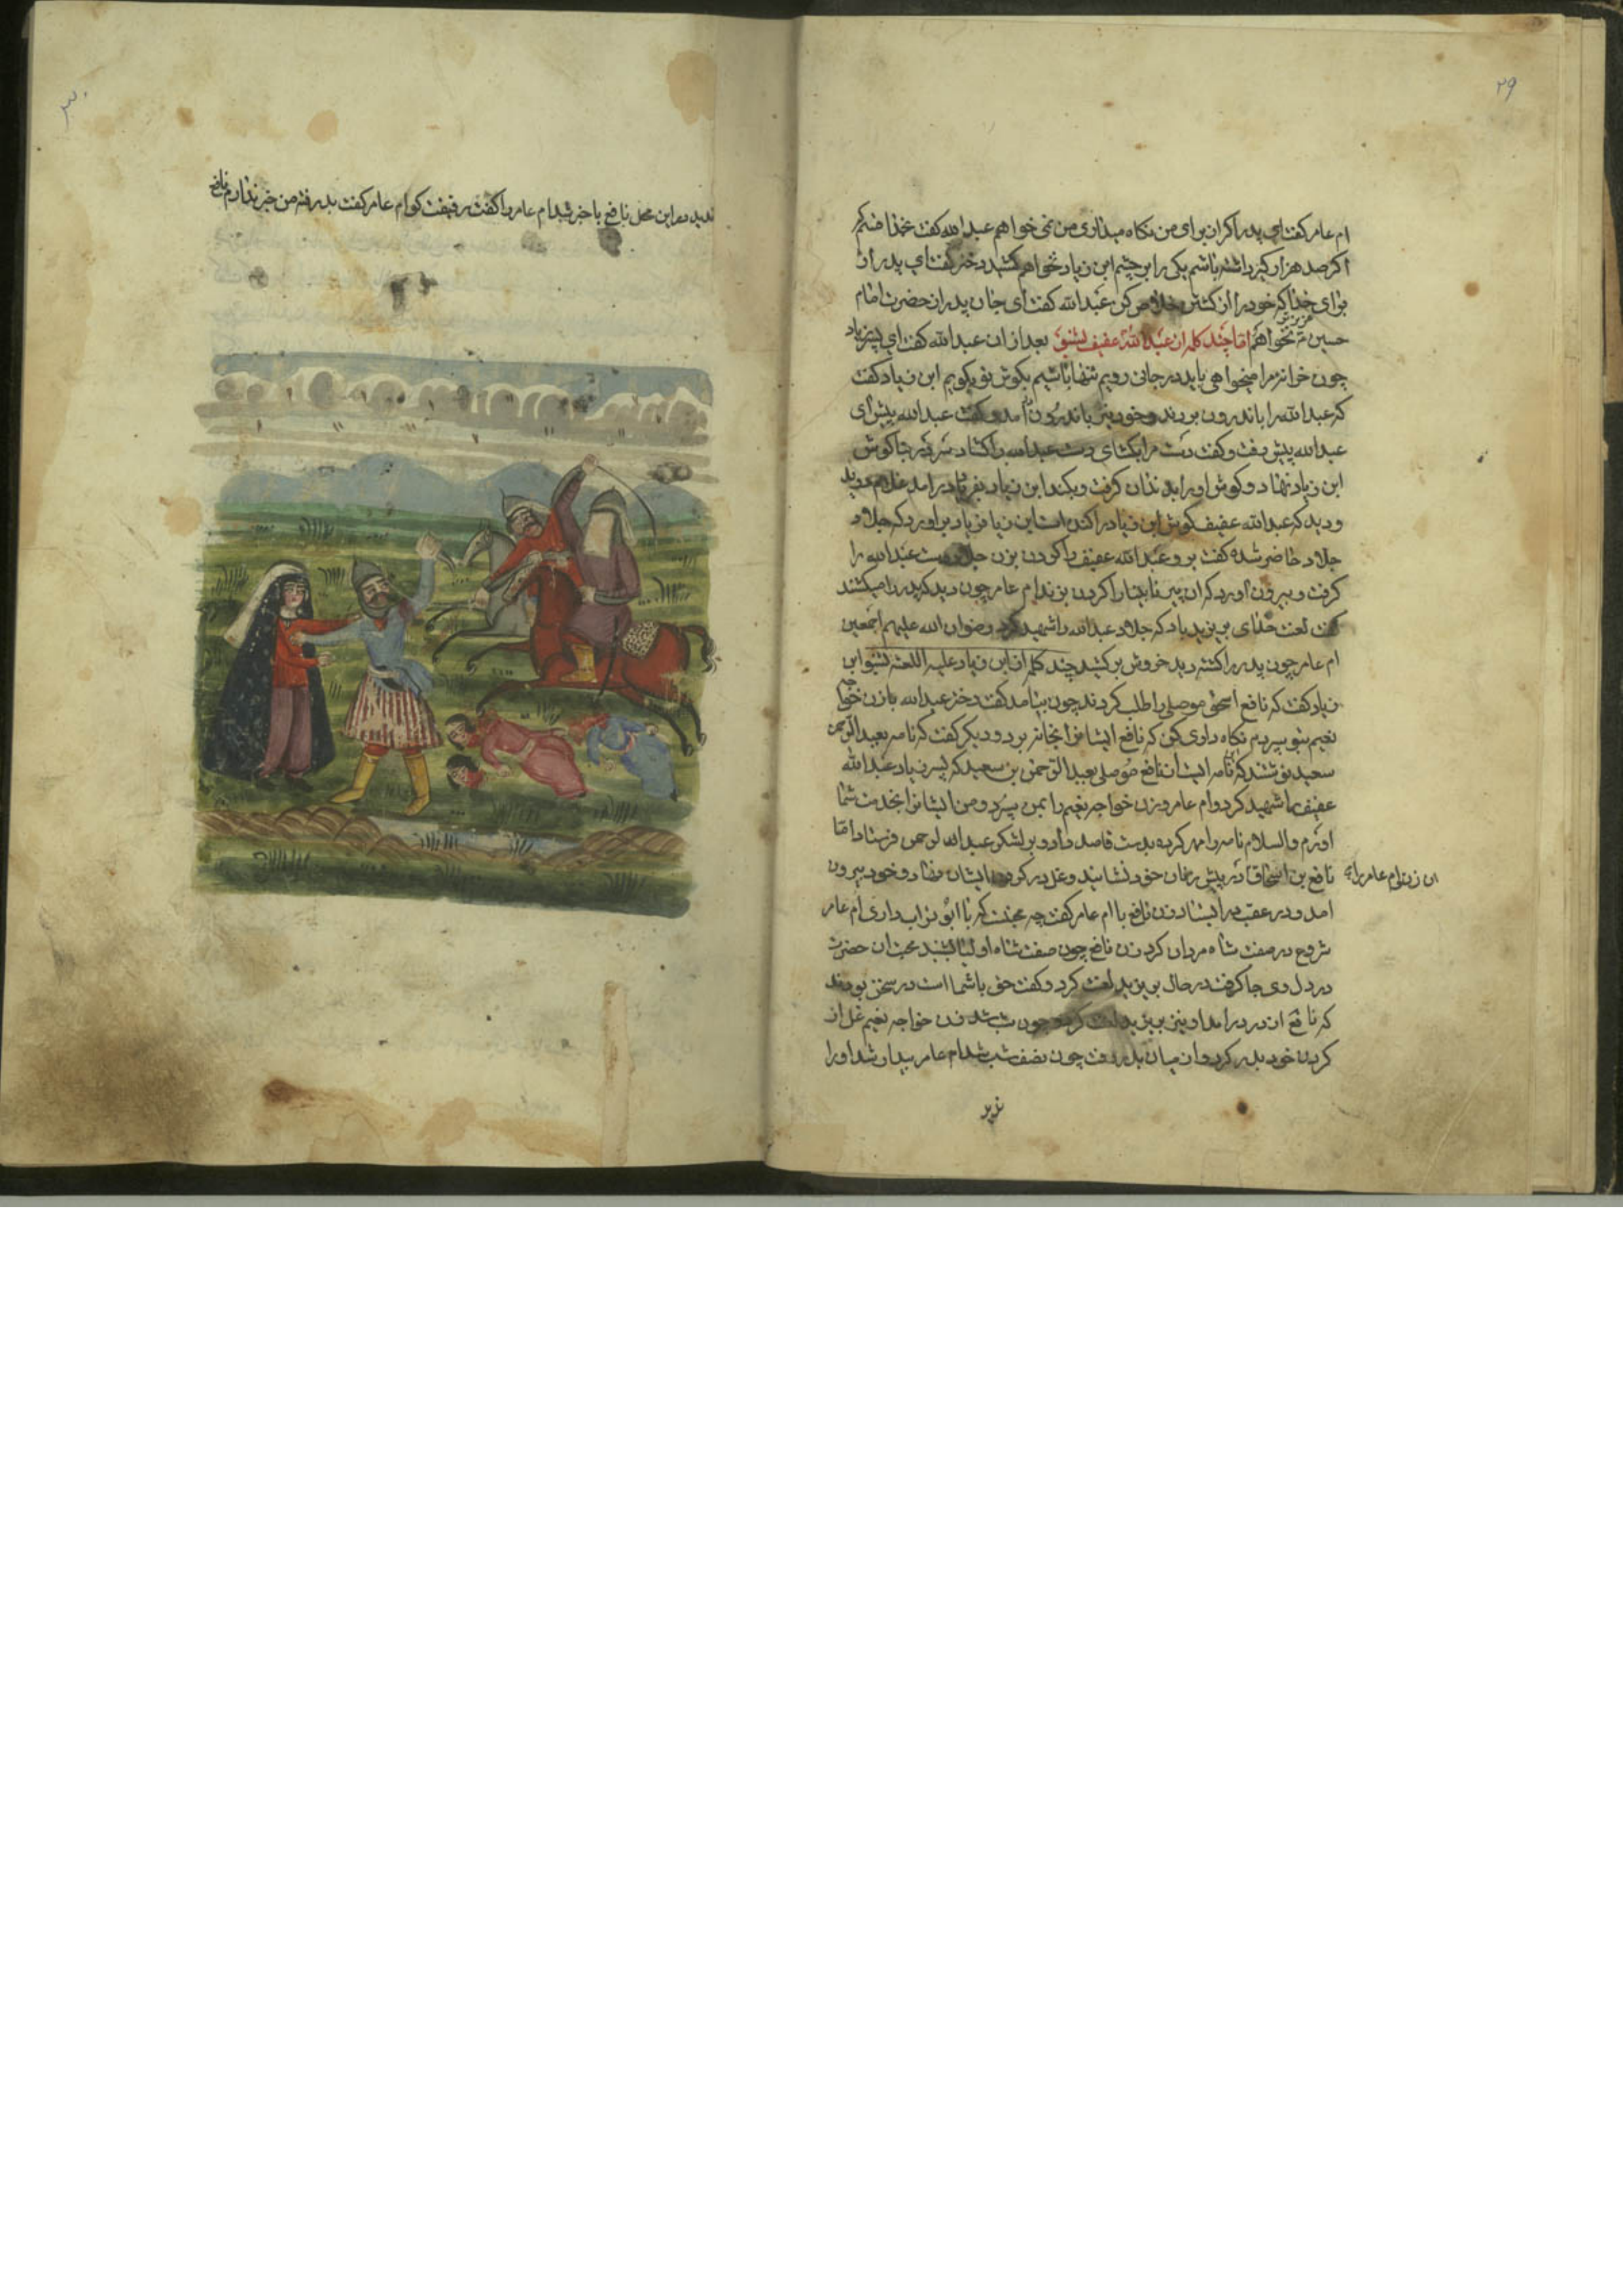 ۲۹
ام عامر کفت ای پدر اکر از برای من نکاه میداری من نمی خواهم عبدالله کفت بخدا قسم
اکر صد هزار کنیز داشته باشم یکی را بر چشم ابن زیاد نخواهم کشید دختر کفت ای پدر از
برای خدا که خود را از کشتن خلاص کن عبدالله کفت ای جان پدر از حضرت امام
حسین عزیزتر نخواهم اما چند کلمه از عبدالله عفیف بشنو بعد از ان عبدالله کفت ای پسر زیاد
چون مرا میخواهی باید در جائی رویم تنها باشیم بکوش تو بکویم ابن زیاد کفت
که عبدالله را باندرون بردند و خود نیز باندرون امد و کفت عبدالله پیش ای
عبدالله پیش رفت و کفت دست مرا بکشای دست عبدالله را کشاد سر در جا کوش
ابن زیاد نهاد و کوش او را بدندان کرفت و بکند ابن زیاد بفریاد درامد غلام دوید
و دید که عبدالله عفیف کوش ابن زیاد را کنده است ابن زیاد فریاد براورد که جلاد
جلاد حاضر شده کفت برو عبدالله عفیف را کردن بزن جلاد دست عبدالله را
کرفت و بیرون اورد که ان پیر نابینا را کردن بزند ام عامر چون دید که پدر را میکشند
کفت لعنت خدای بر یزید باد که جلاد عبدالله را شهید کرد رضوان الله علیهم اجمعین
ام عامر چون پدر را کشته دید خروش برکشید چند کلمه از ابن زیاد علیه اللعنه بشنو ابن
زیاد کفت که نافع اسحق موصلی را طلب کردند چون بیامد کفت دختر عبدالله با زن خواجه
نعیم بتو سپردم نکاه داری کن که نافع ایشانرا بخانه برد و دیکر کفت که نامه بعبدالرحمن
سعید نوشتند که نامه ایست از نافع موصلی بعبدالرحمن بن سعید که پسر زیاد عبدالله
عفیف را شهید کرد و ام عامر و زن خواجه نعیم را بمن سپرد و من ایشانرا بخدمت شما
اورم والسلام نامه را مهر کرده بدست قاصد داد و بر لشکر عبدالرحمن فرستاد اما
نافع بن اسحاق در پیش زنان خود نشانید و غل در کردن ایشان نهاد و خود بیرون
ان زن ام عامر را
امد و در عقب در ایستاد زن نافع با ام عامر کفت چه محبت که با ابو تراب داری ام عامر
شروع در صفت شاه مردان کرد زن نافع چون صفت شاه اولیا شنید محبت ان حضرت
در دل وی جا کرفت در حال بر یزید لعنت کرد و کفت حق با شما است در سخن بودند
که نافع از در درامد او نیز بر یزید لعنت کرد و چون شب شد زن خواجه نعیم غل از
کردن خود بدر کرد و از میان بدر رفت چون نصف شب شد ام عامر بیدار شد او را
ندید
۳۰
ندید در این محل نافع با خبر شد ام عامر را کفت رفیقت کو ام عامر کفت بدر رفته من خبر ندارم نافع